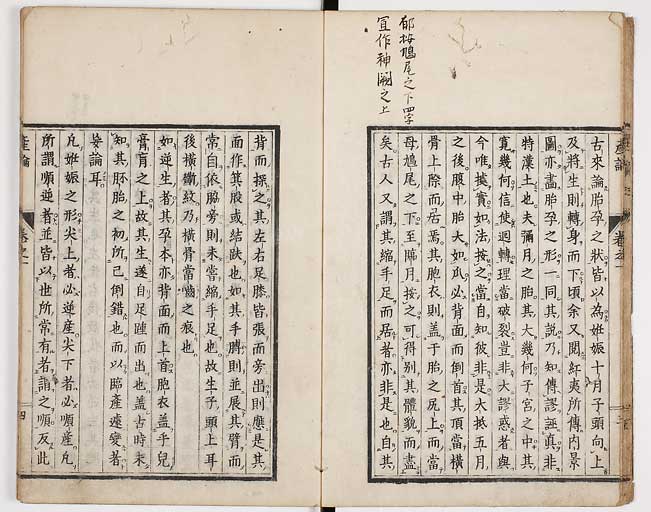 郁按鳩尾之下四字
宜作神闕之上
古來論胎孕之狀皆以為姙娠十月子頭向上
及將生則轉身而下頃余又閱紅夷所傳内景
圖亦畵胎孕之形一同其説乃知傳謬誣真非
特漢土也夫彌月之胎其大幾何子宮之中其
寛幾何信使週轉理當破裂豈非大謬惑者與
今唯摸實如法按之當自知彼非是大抵五月
之後腹中胎大如瓜必背面而倒首其頂當橫
骨上際而居焉其胞衣則盖于胎之尻上而當
母鳩尾之下至臨月按之可得別其體貌而盡
矣古人又謂其縮手足而居者亦非是也自其
背而探之其左右足膝皆張而旁出則應是其
面作箕股或結趺也如其手臂則並展其臂而
常自依脇旁則未嘗縮手足也故生子頭上耳
後橫皺紋乃橫骨當齒之痕也
如逆生者其孕本亦背面而上首胞衣盖乎兒
膏肓之上故其生遂自足踵而出也盖古時未
知其胚胎之初所已倒錯也而以臨產遽變者
妄論耳
凡姙娠之形尖上者必逆産尖下者必順產凡
所謂順逆者並皆以世所常有者謂之順反此
産論
卷之一
四